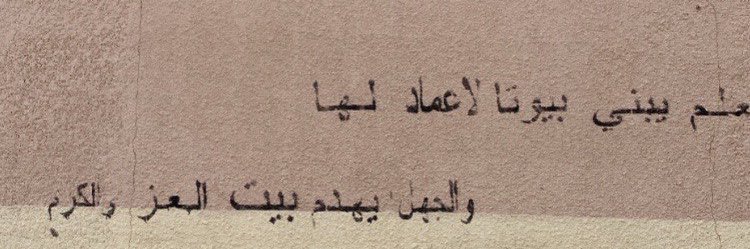 علم يبني بيوتا لاعماد لها
والجهل يهدم بيت العز والكرم